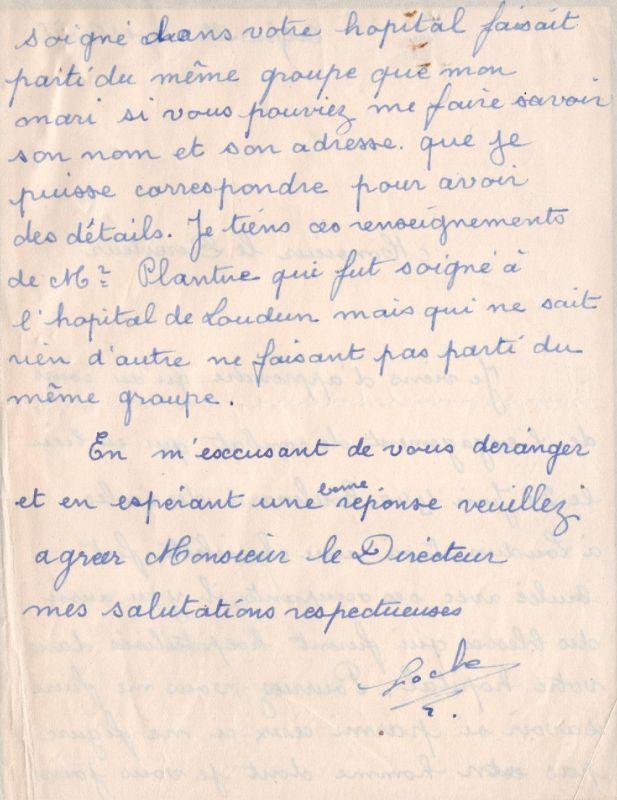 soigné dans votre hopital faisait
parti du même groupe que mon
mari si vous pouviez me faire savoir
son nom et son adresse. que je
puisse correspondre pour avoir
des détails. Je tiens ces renseignements
de Mr Plantue qui fut soigné à
l'hopital de Loudun mais qui ne sait
rien d'autre ne faisant pas parti du
même groupe.
En m'exccusant de vous deranger
et en espérant une bonne réponse veuillez
agréer Monsieur le Dirécteur
mes salutations respectueuses